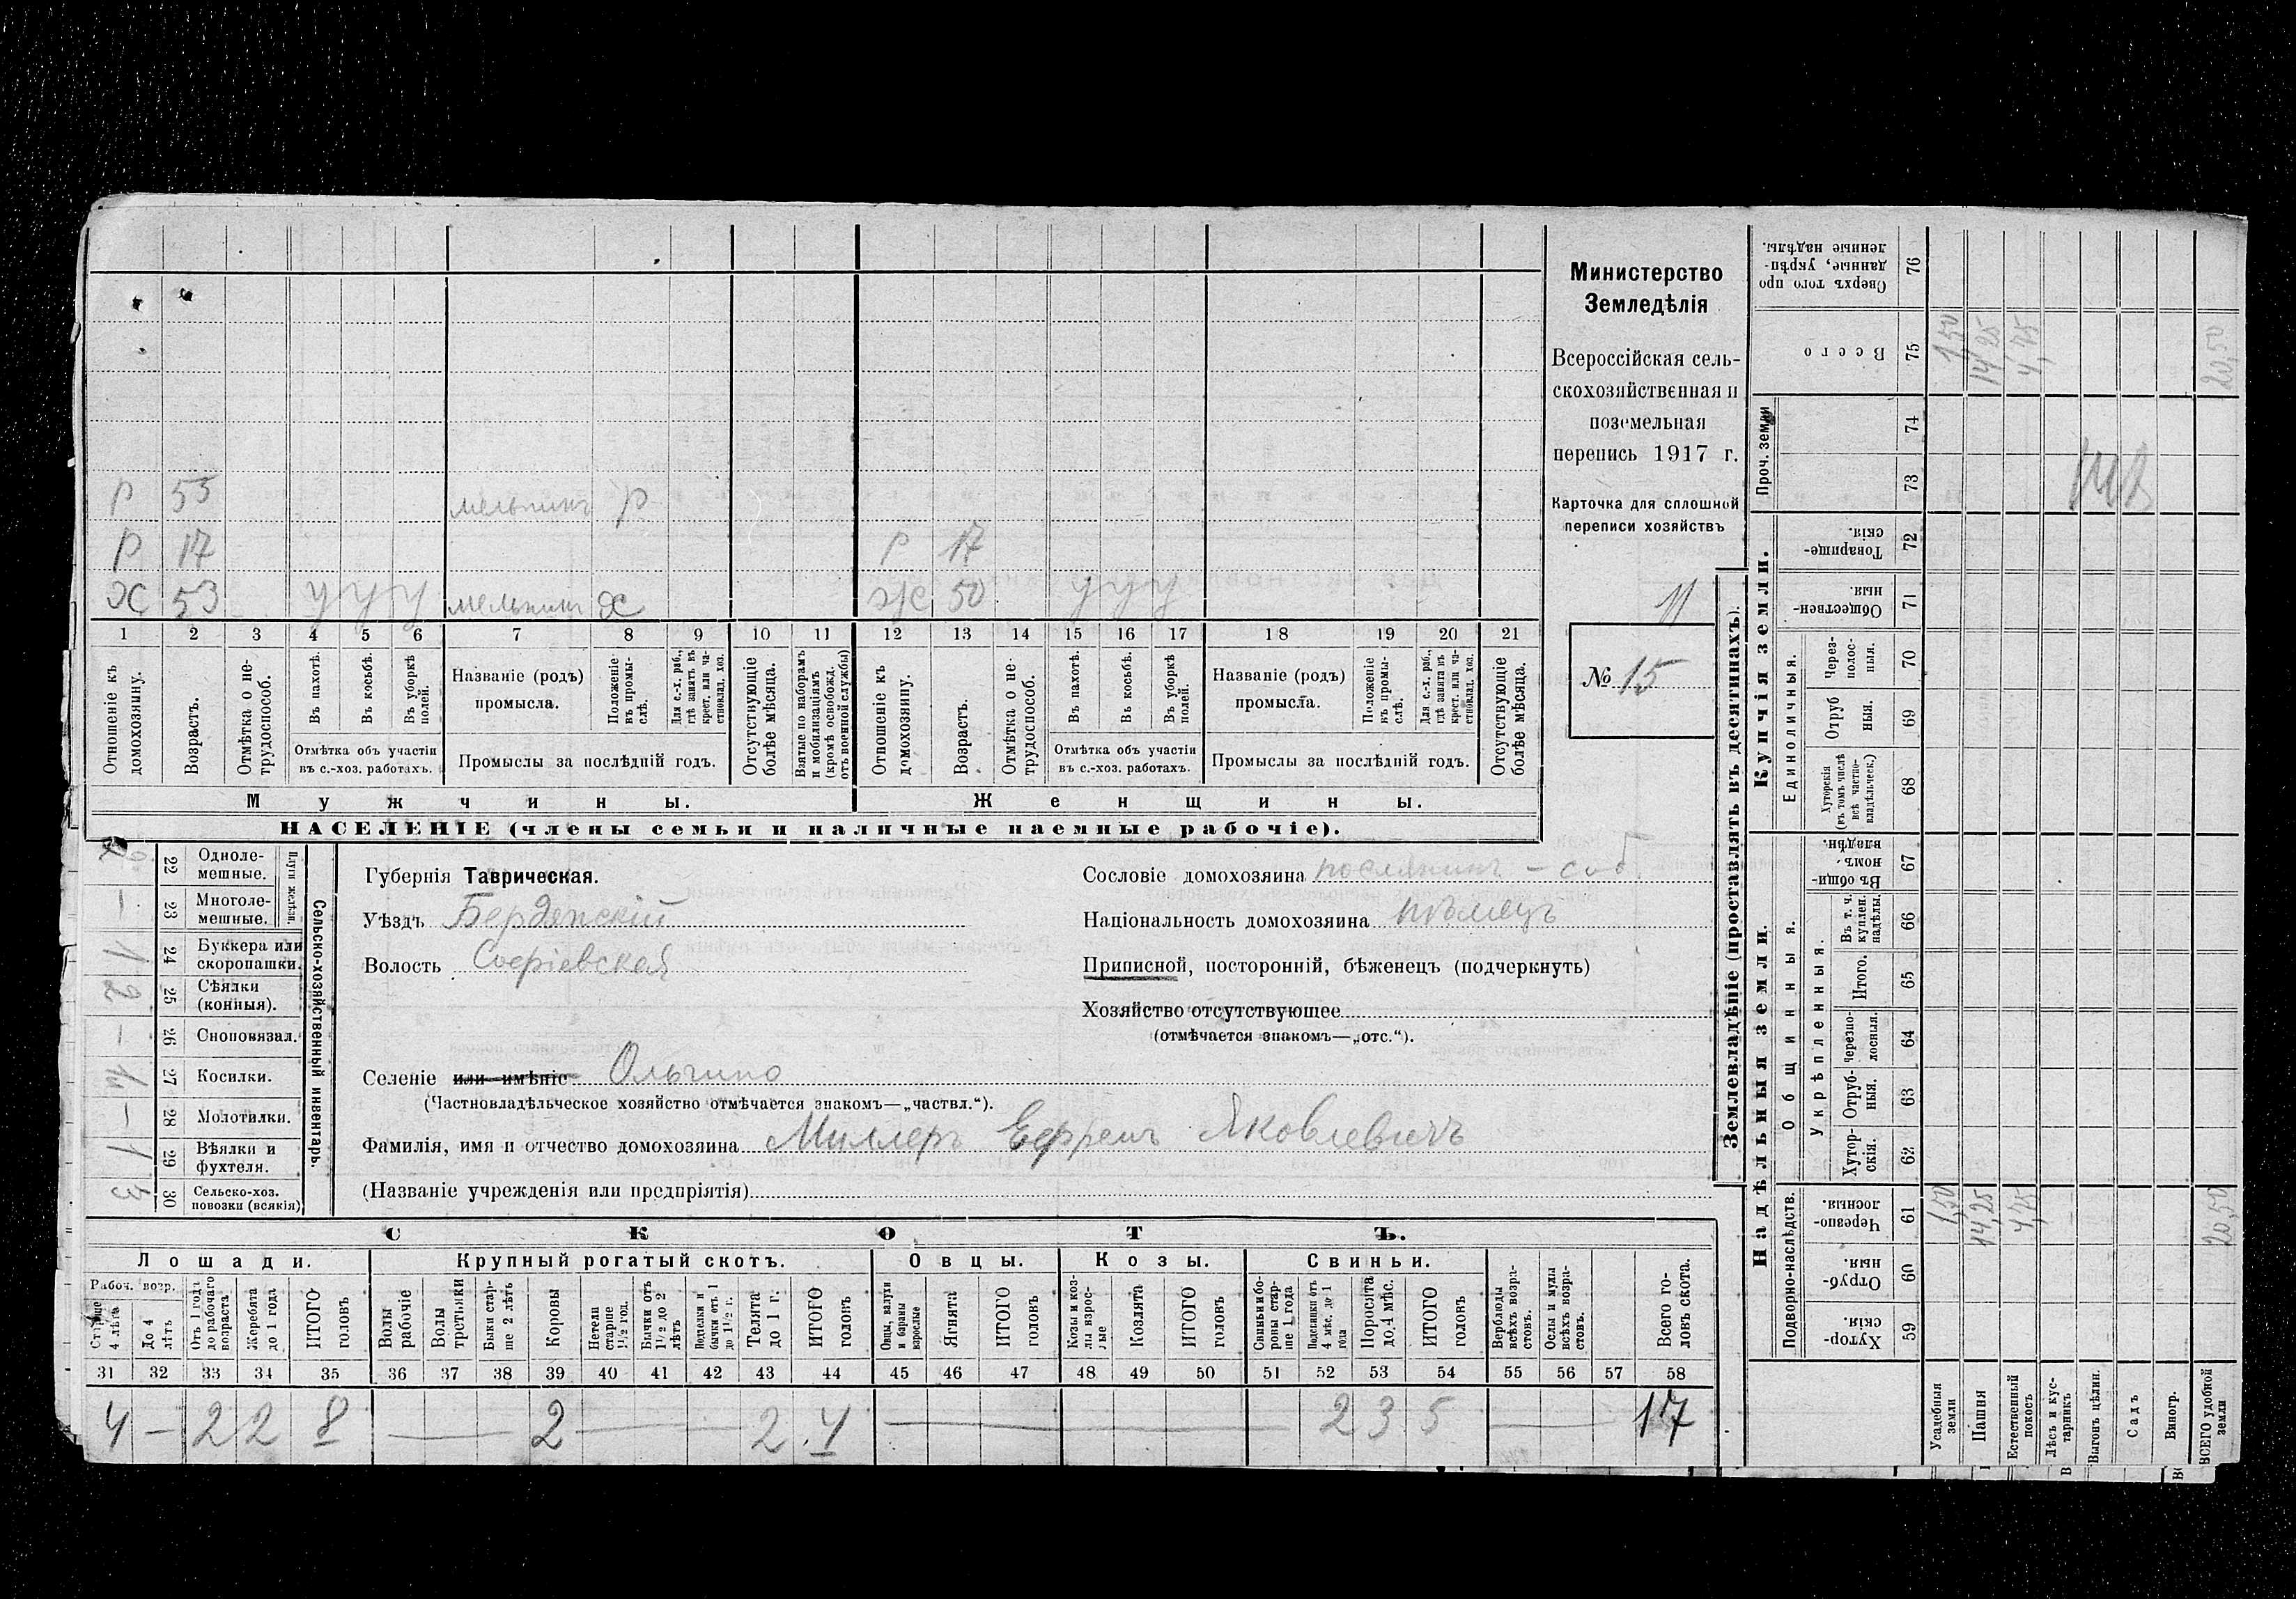 Р 55 мельникъ Р
Р 17 Р 17
Х 53 У У У мельникъ Х Ж 50 У У У
1 2 3 4 5 6 7 8 9 10 11 12 13 14 15 16 17 18 19 20 21
Отношеніе къ домохозяину.
Возрастъ.
Отмѣтка о не-трудоспособ.
Въ пахотѣ.
Въ косьбѣ.
Въ уборкѣ полей.
Отмѣтка объ участіи
въ с.-хоз. работахъ.
Названіе (родъ)
промысла.
Положеніе въ промы-слѣ.
Для с.-х. раб., гдѣ занятъ въ крест. или ча-стновлад. хоз.
Промыслы за послѣдній годъ.
Отсутствующіе болѣе мѣсяца.
Взятые по наборамъ и мобилизаціямъ (кромѣ освобожд. отъ военной службы)
Отношеніе къ домохозяину.
Возрастъ.
Отмѣтка о не-трудоспособ.
Въ пахотѣ.
Въ косьбѣ.
Въ уборкѣ полей.
Отмѣтка объ участіи
въ с.-хоз. работахъ.
Названіе (родъ)
промысла.
Положеніе въ промы-слѣ.
Для с.-х. раб., гдѣ занята въ крест. или ча-стновлад. хоз.
Промыслы за послѣдній годъ.
Отсутствующіе болѣе мѣсяца.
Мужчины. Женщины.
НАСЕЛЕНІЕ (члены семьи и наличные наемные рабочіе).
Министерство
Земледѣлія
Всероссійская сель-
скохозяйственная и
поземельная
перепись 1917 г.
Карточка для сплошной
переписи хозяйствъ
11
№ 15
Сельско-хозяйственный инвентарь.
Плуги желѣзн.
22 Одноле-мешные.
— 23 Многоле-мешные.
1 24 Буккера или скоропашки.
2 25 Сѣялки (конныя).
— 26 Сноповязал.
27 Косилки.
— 28 Молотилки.
1 29 Вѣялки и фухтеля.
3 30 Сельско-хоз. повозки (всякія)
Губернія Таврическая.
Уѣздъ Бердянскій
Волость Софіевская
Селеніе или имѣніе Ольгино
(Частновладѣльческое хозяйство отмѣчается знакомъ—„частвл.“).
Фамилія, имя и отчество домохозяина Миллеръ Ефремъ Яковлевичъ
(Названіе учрежденія или предпріятія)
Сословіе домохозяина поселянинъ – соб.
Національность домохозяина нѣмецъ
Приписной, посторонній, бѣженецъ (подчеркнуть)
Хозяйство отсутствующее
(отмѣчается знакомъ—„отс.“).
СКОТЪ.
Лошади. Крупный рогатый скотъ. Овцы. Козы. Свиньи.
Рабоч. возр.
Старше 4 лѣтъ
До 4 лѣтъ
Отъ 1 года до рабочаго возраста
Жеребята до 1 года
ИТОГО головъ
Волы рабочіе
Волы третьяки
Быки стар-ше 2 лѣтъ
Коровы
Нетели старше 1½ год.
Бычки отъ 1½ до 2 лѣтъ
Подтелки и бычки отъ 1 до 1½ г.
Телята до 1 г.
ИТОГО головъ
Овцы, валухи и бараны взрослые
Ягнята
ИТОГО головъ
Козы и коз-лы взрос-лые
Козлята
ИТОГО головъ
Свиньи и бо-ровы стар-ше 1 года
Подсвинки отъ 4 мѣс. до 1 года
Поросята до 4 мѣс.
ИТОГО головъ
Верблюды всѣхъ возра-стовъ.
Ослы и мулы всѣхъ возра-стовъ.
Всего го-ловъ скота.
31 32 33 34 35 36 37 38 39 40 41 42 43 44 45 46 47 48 49 50 51 52 53 54 55 56 57 58
4 — 2 2 8 — 2 — 2 4 — 2 3 5 — 17
Землевладѣніе (проставлять въ десятинахъ).
Надѣльныя земли. Купчія земли. Проч. земли
Подворно-наслѣдств. Общинныя. Единоличныя.
Укрѣпленныя.
Сверхъ того про данные, укрѣп-ленные надѣлы. 76
Всего 75 1,50 14,25 4,75 20,50
74
73
Товарище-скія. 72
Обществен-ныя. 71
Через-полос-ныя. 70
Отруб ныя. 69
Хуторскія (въ томъ числѣ всѣ частно-владѣльческ.) 68
Въ общи-номъ владѣн. 67
Въ т. ч. куплен. надѣлы. 66
Итого. 65
Черезпо-лосныя. 64
Отруб-ныя. 63
Хутор-скія. 62
Черезпо-лосныя. 61 1,50 14,25 4,75 20,50
Отруб-ныя. 60
Хутор-скія. 59
Усадебныя земли
Пашня
Естественный покосъ
Лѣсъ и кус-тарникъ
Выгонъ цѣлин.
Садъ
Виногр.
ВСЕГО удобной земли